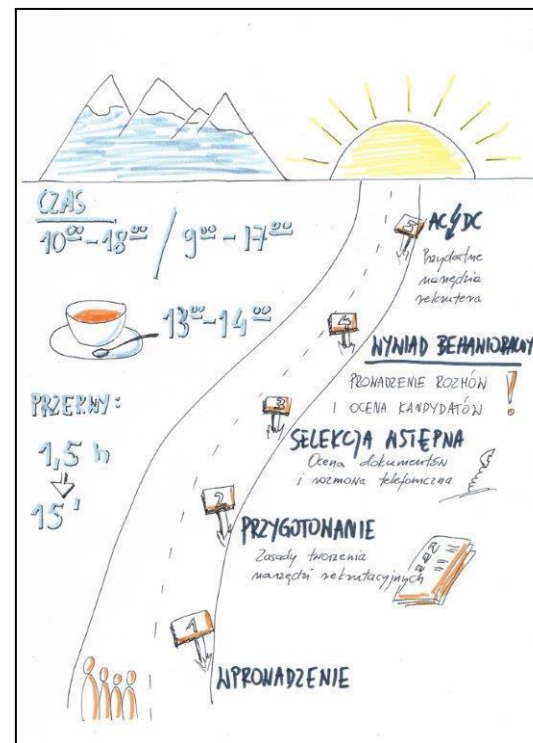 CZAS
10⁰⁰-18⁰⁰ / 9⁰⁰-17⁰⁰
13⁰⁰-14⁰⁰
PRZERWY:
1,5 h
15'
5
AC/DC
Przydatne
narzędzia
rekrutera
4
WYWIAD BEHAWIORALNY
PROWADZENIE ROZMÓW
I OCENA KANDYDATÓW !
3
SELEKCJA WSTĘPNA
Ocena dokumentów
i rozmowa telefoniczna
2
PRZYGOTOWANIE
Zasady tworzenia
narzędzi rekrutacyjnych
1
WPROWADZENIE